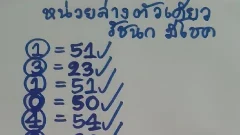 หน่วยล่างตัวเดียว
รัชนก มีโชค
① = 51✓
③ = 23✓
① = 51✓
⓪ = 50✓
④ = 54✓